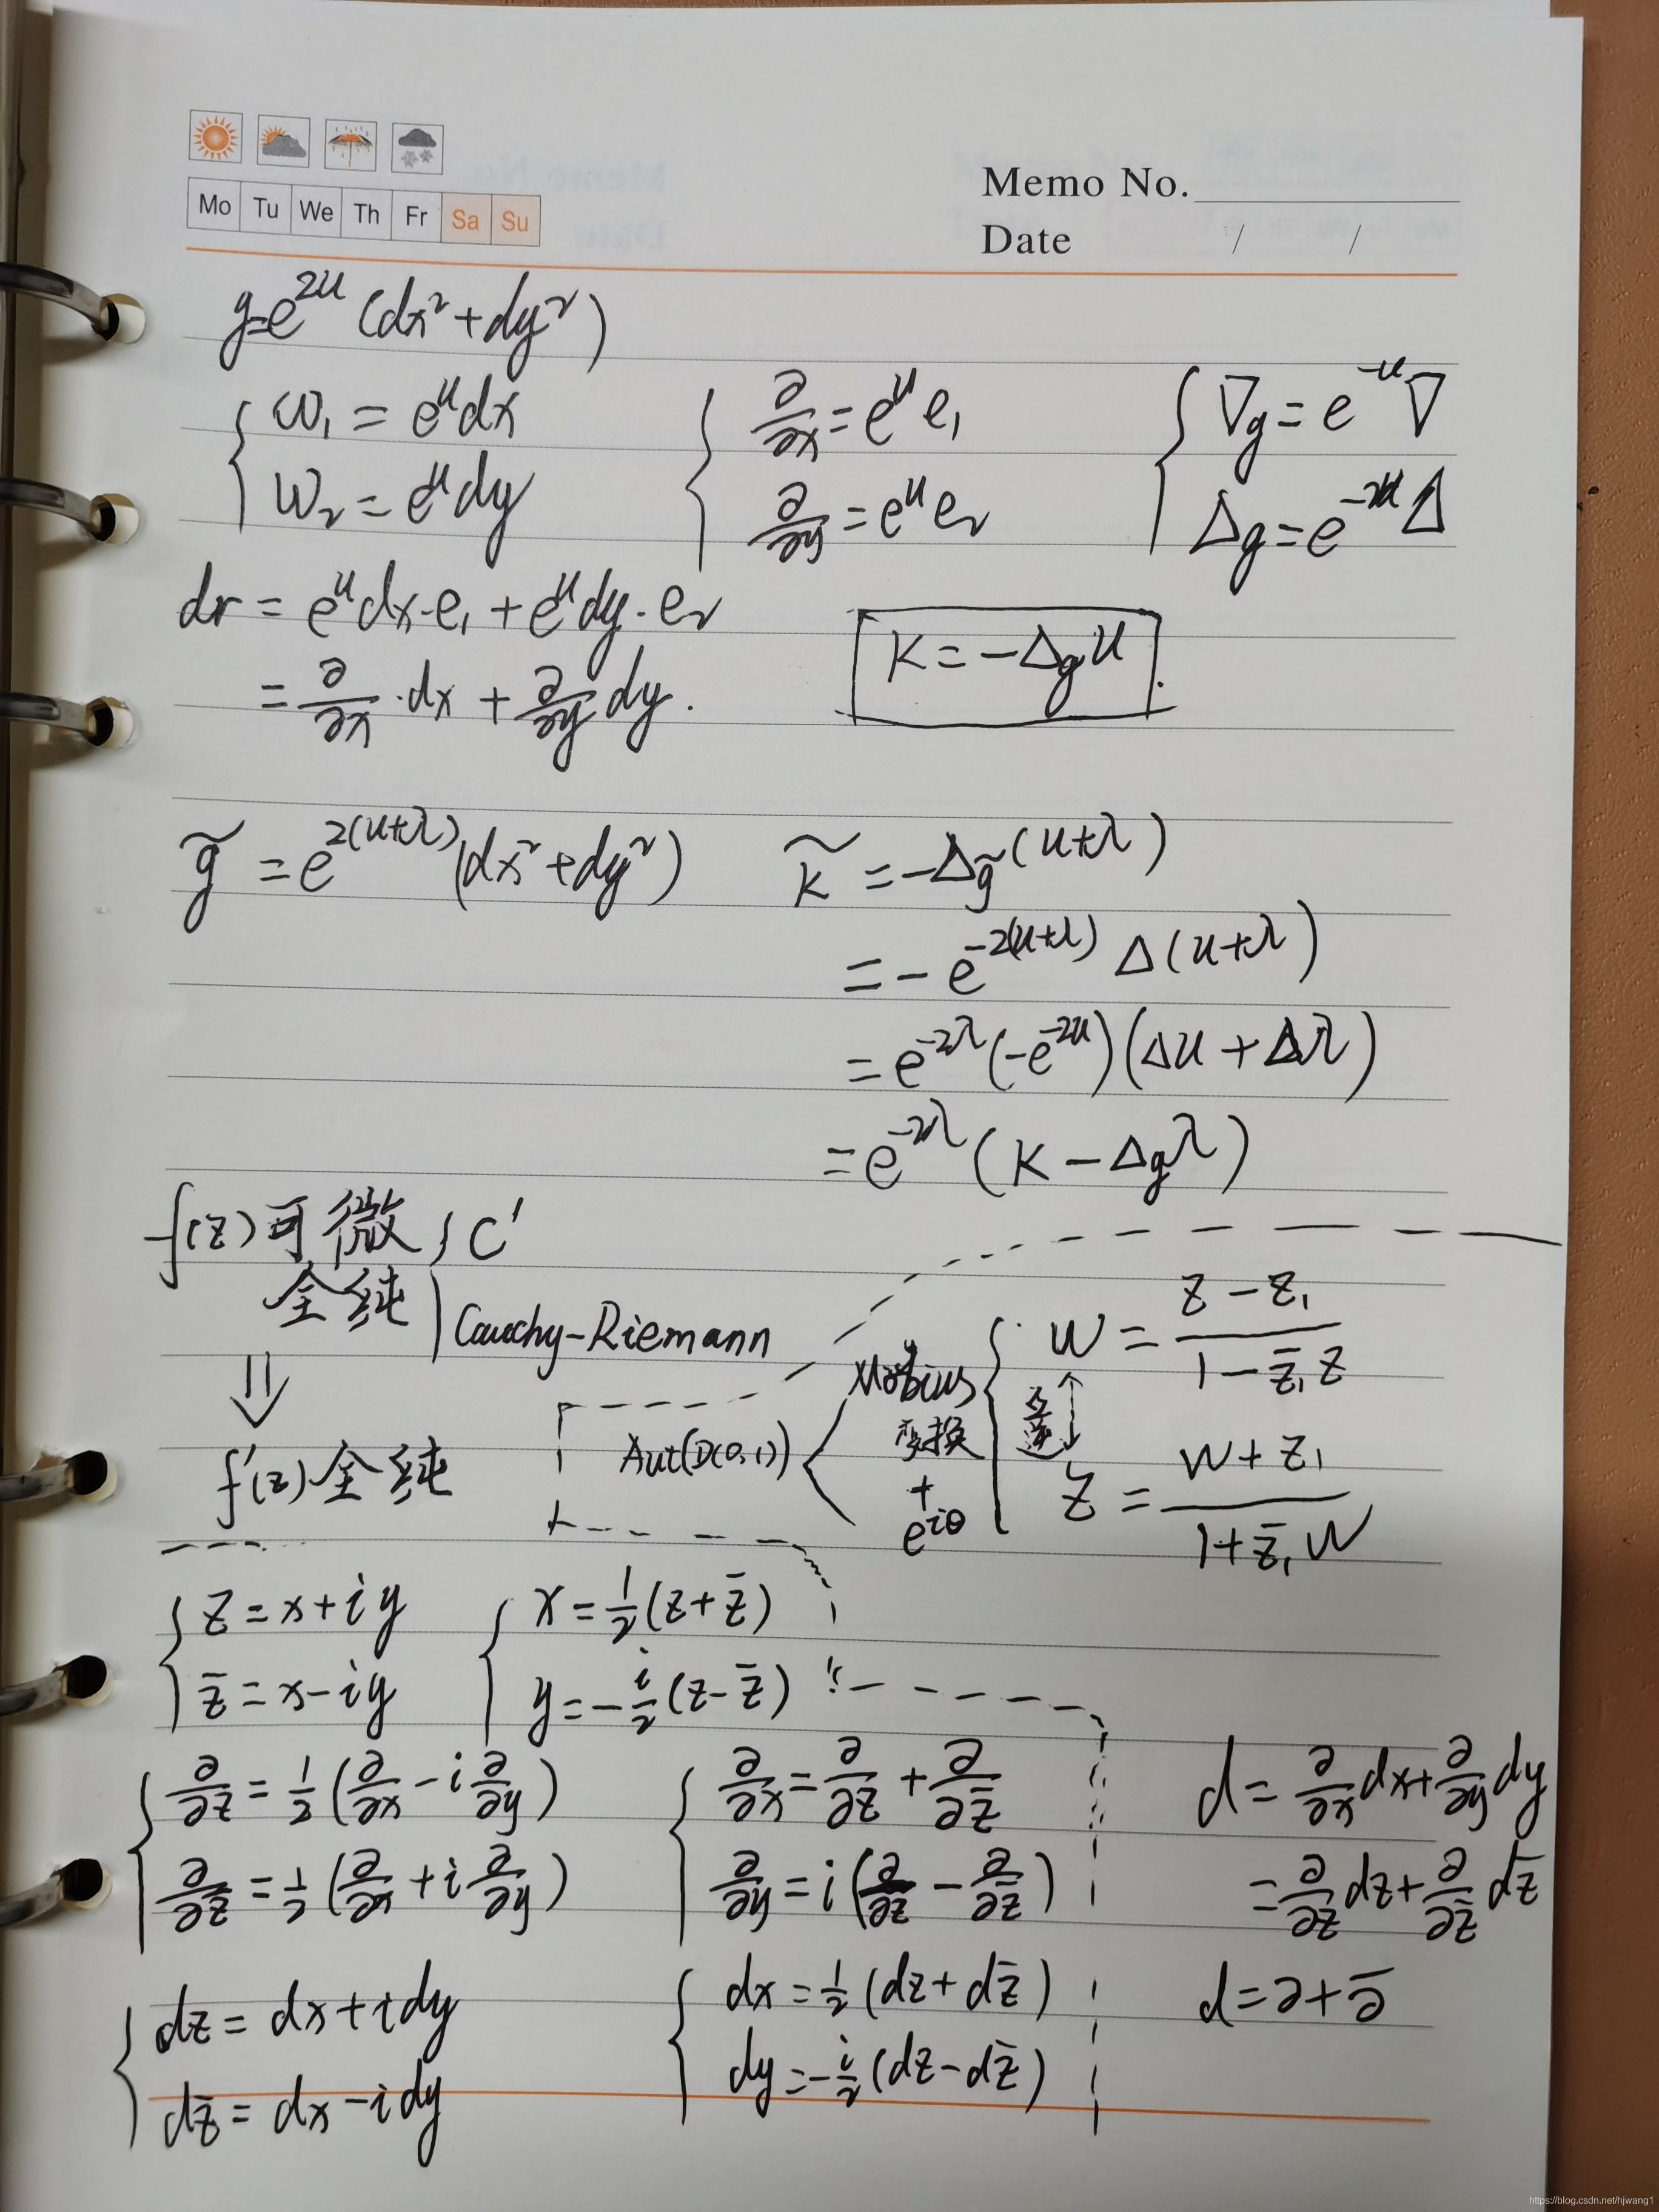 Mo Tu We Th Fr Sa Su
Memo No.
Date / /
g=e^{2u}(dx²+dy²)
{ω₁ = e^u dx
ω₂ = e^u dy
{∂/∂x = e^u e₁
∂/∂y = e^u e₂
{∇g = e^{-u}∇
Δg = e^{-2u}Δ
dr = e^u dx·e₁ + e^u dy·e₂
= ∂/∂x·dx + ∂/∂y dy.
K = -Δg u.
g̃ = e^{2(u+λ)}(dx²+dy²)
k̃ = -Δg̃(u+λ)
= -e^{-2(u+λ)} Δ(u+λ)
= e^{-2λ}(-e^{-2u})(Δu + Δλ)
= e^{-2λ}(K - Δgλ)
f(z)可微 { C¹
全纯 Cauchy-Riemann
⇓
f'(z)全纯
Aut(D(0,1)) < Möbius
变换
+
e^{iθ}
{w = (z - z₁)/(1 - z̄₁z)
互逆
z = (w + z₁)/(1 + z̄₁w)
{z = x+iy
z̄ = x-iy
{x = 1/2(z+z̄)
y = -i/2(z-z̄)
{∂/∂z = 1/2(∂/∂x - i∂/∂y)
∂/∂z̄ = 1/2(∂/∂x + i∂/∂y)
{∂/∂x = ∂/∂z + ∂/∂z̄
∂/∂y = i(∂/∂z - ∂/∂z̄)
d = ∂/∂x dx + ∂/∂y dy
= ∂/∂z dz + ∂/∂z̄ dz̄
d = ∂+∂̄
{dz = dx + i dy
dz̄ = dx - i dy
{dx = 1/2(dz + dz̄)
dy = -i/2(dz - dz̄)
https://blog.csdn.net/hjwang1